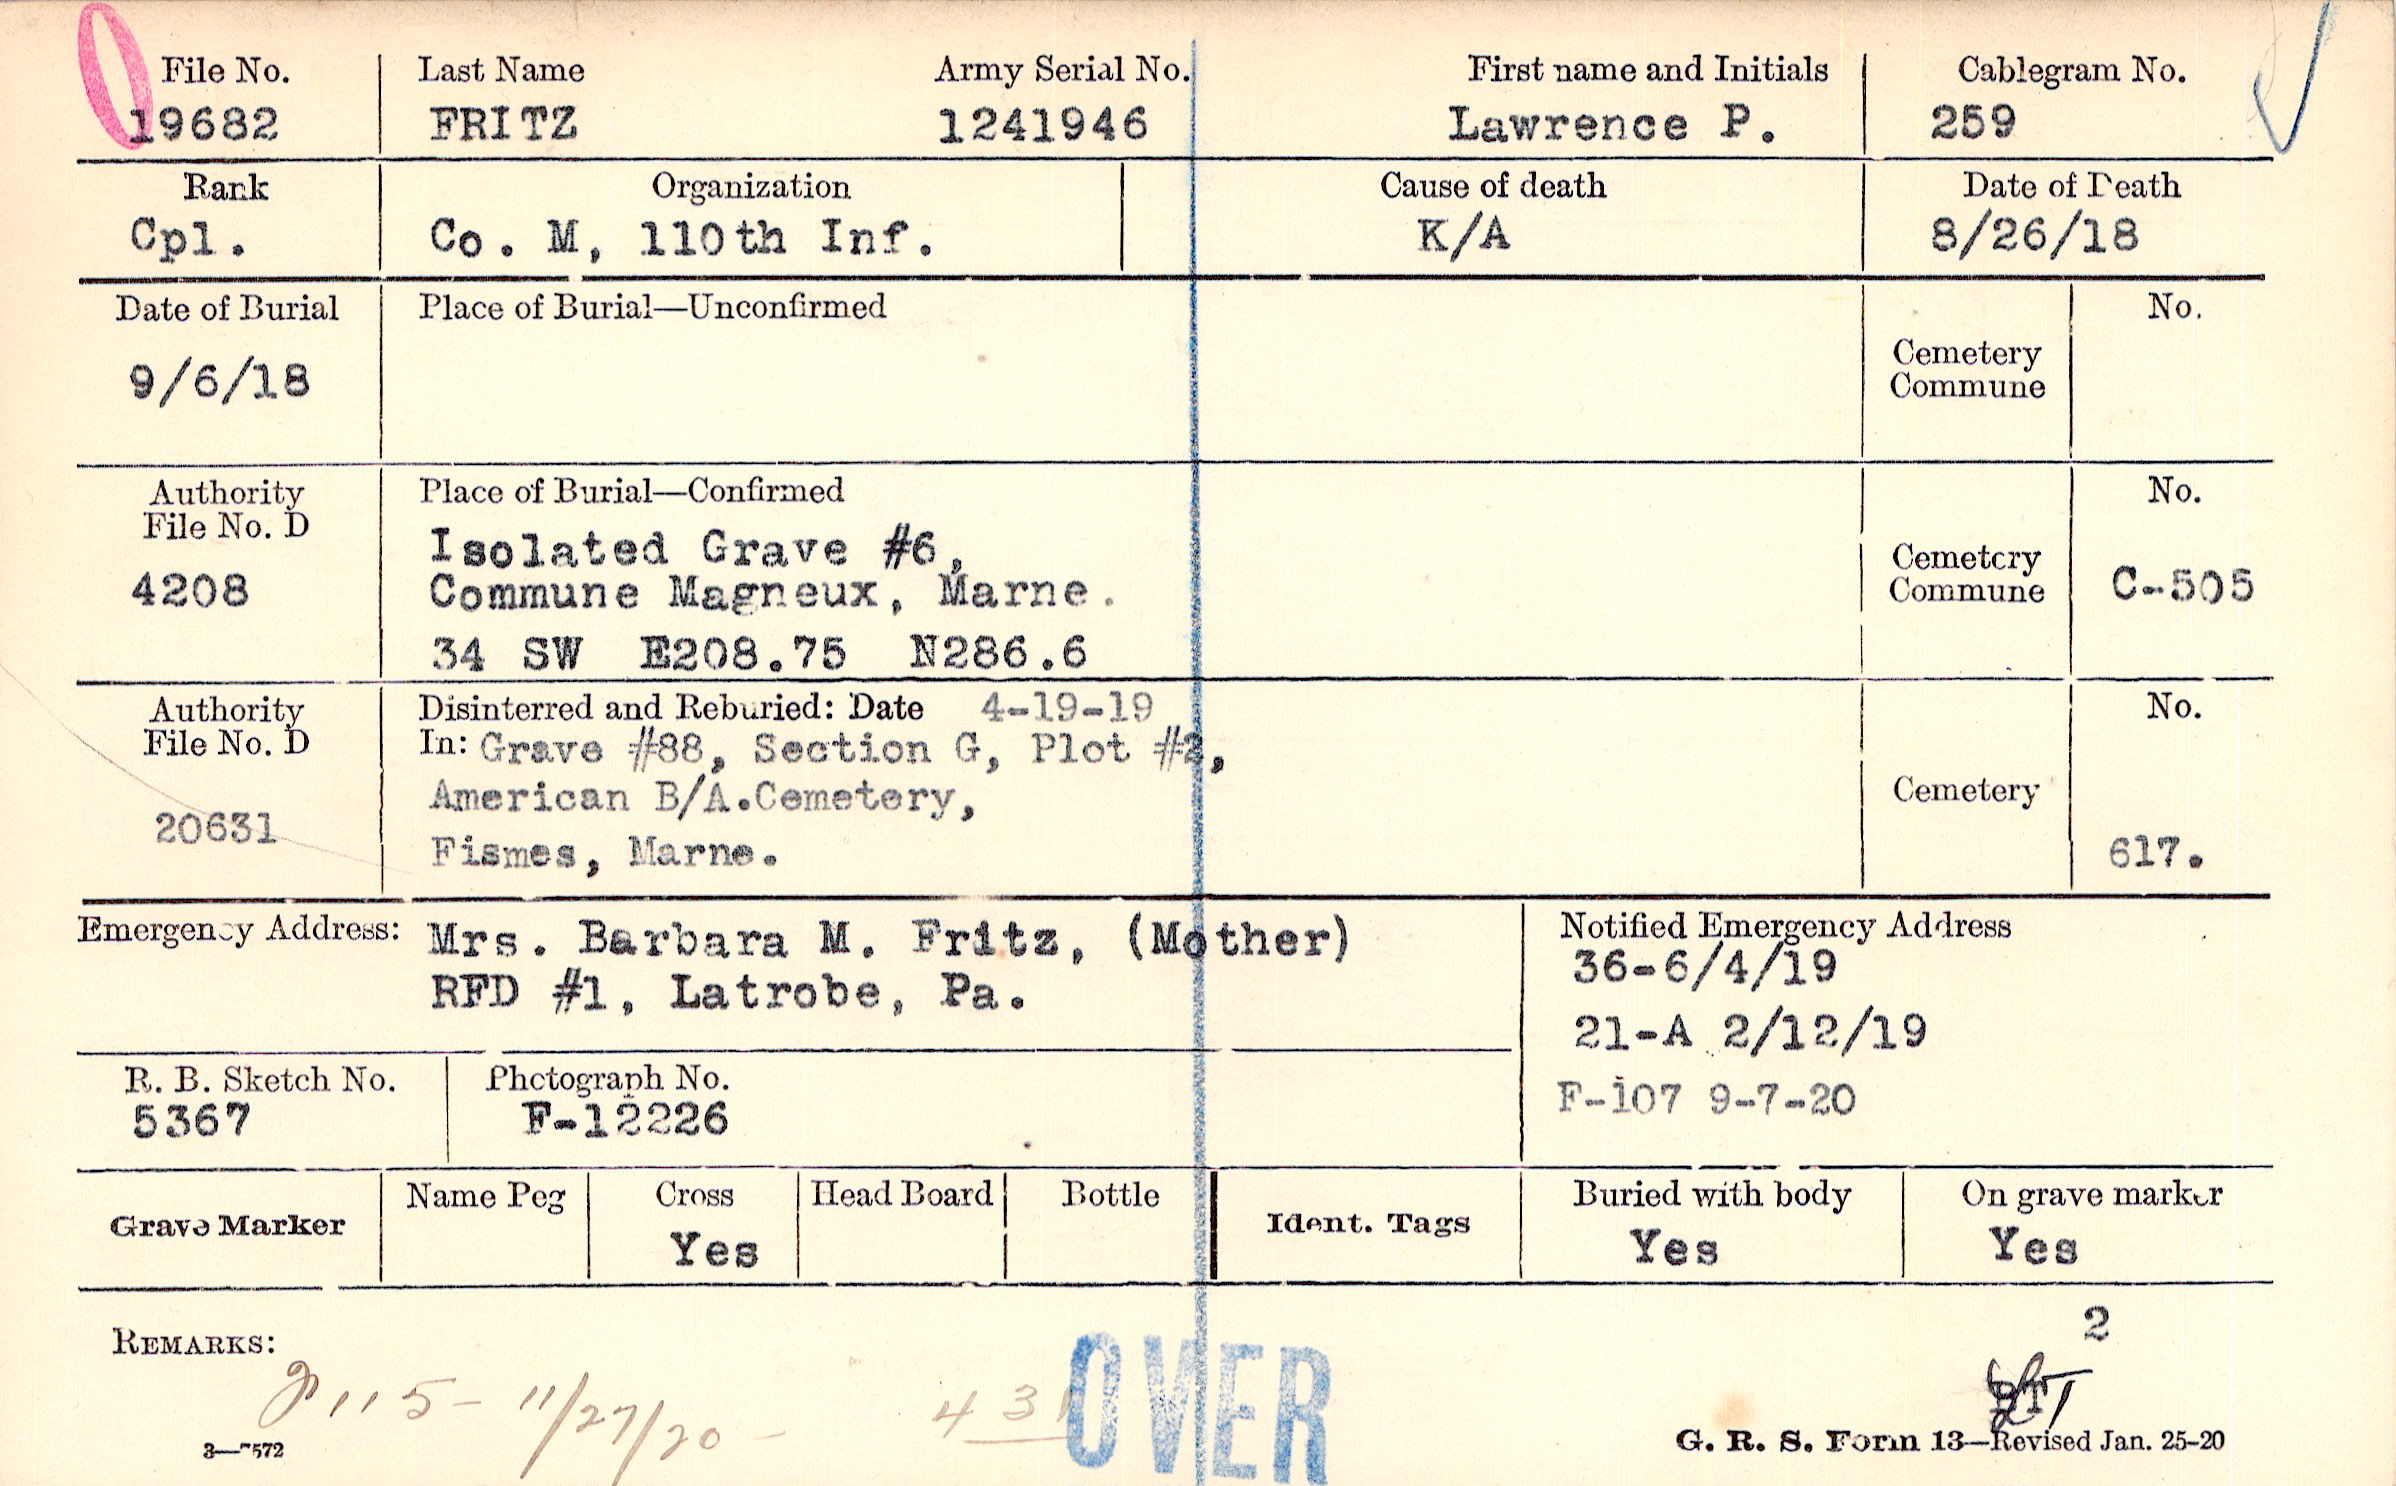 File No. Last Name Army Serial No. First name and Initials Cablegram No.
19682 FRITZ 1241946 Lawrence P. 259
Rank Organization Cause of death Date of Death
Cpl. Co. M, 110th Inf. K/A 8/26/18
Date of Burial Place of Burial—Unconfirmed No.
Cemetery
Commune
9/6/18
Authority Place of Burial—Confirmed No.
File No. D
Isolated Grave #6,
4208 Commune Magneux, Marne. Cemetery
Commune C-505
34 SW E208.75 N286.6
Authority Disinterred and Reburied: Date 4-19-19 No.
File No. D In: Grave #88, Section G, Plot #2,
American B/A.Cemetery, Cemetery
20631
Fismes, Marne. 617.
Emergency Address: Mrs. Barbara M. Fritz, (Mother) Notified Emergency Address
36-6/4/19
RFD #1, Latrobe, Pa.
21-A 2/12/19
R. B. Sketch No. Photograph No. F-107 9-7-20
5367 F-12226
Grave Marker Name Peg Cross Head Board Bottle Ident. Tags Buried with body On grave marker
Yes Yes Yes
2
REMARKS:
115- 11/27/20 - 431 OVER
3—7572 G. R. S. Form 13—Revised Jan. 25-20